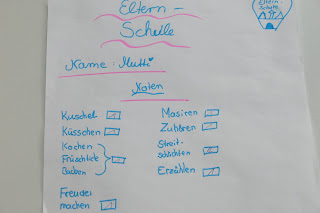 Eltern -
Schule
Eltern-
Schule
Name: Mutti
Noten
Kuschel
Küsschen
Kochen
Früschtück
Backen
Freude
machen
Masiren
Zuhören
Streit-
schlichten
Erzählen